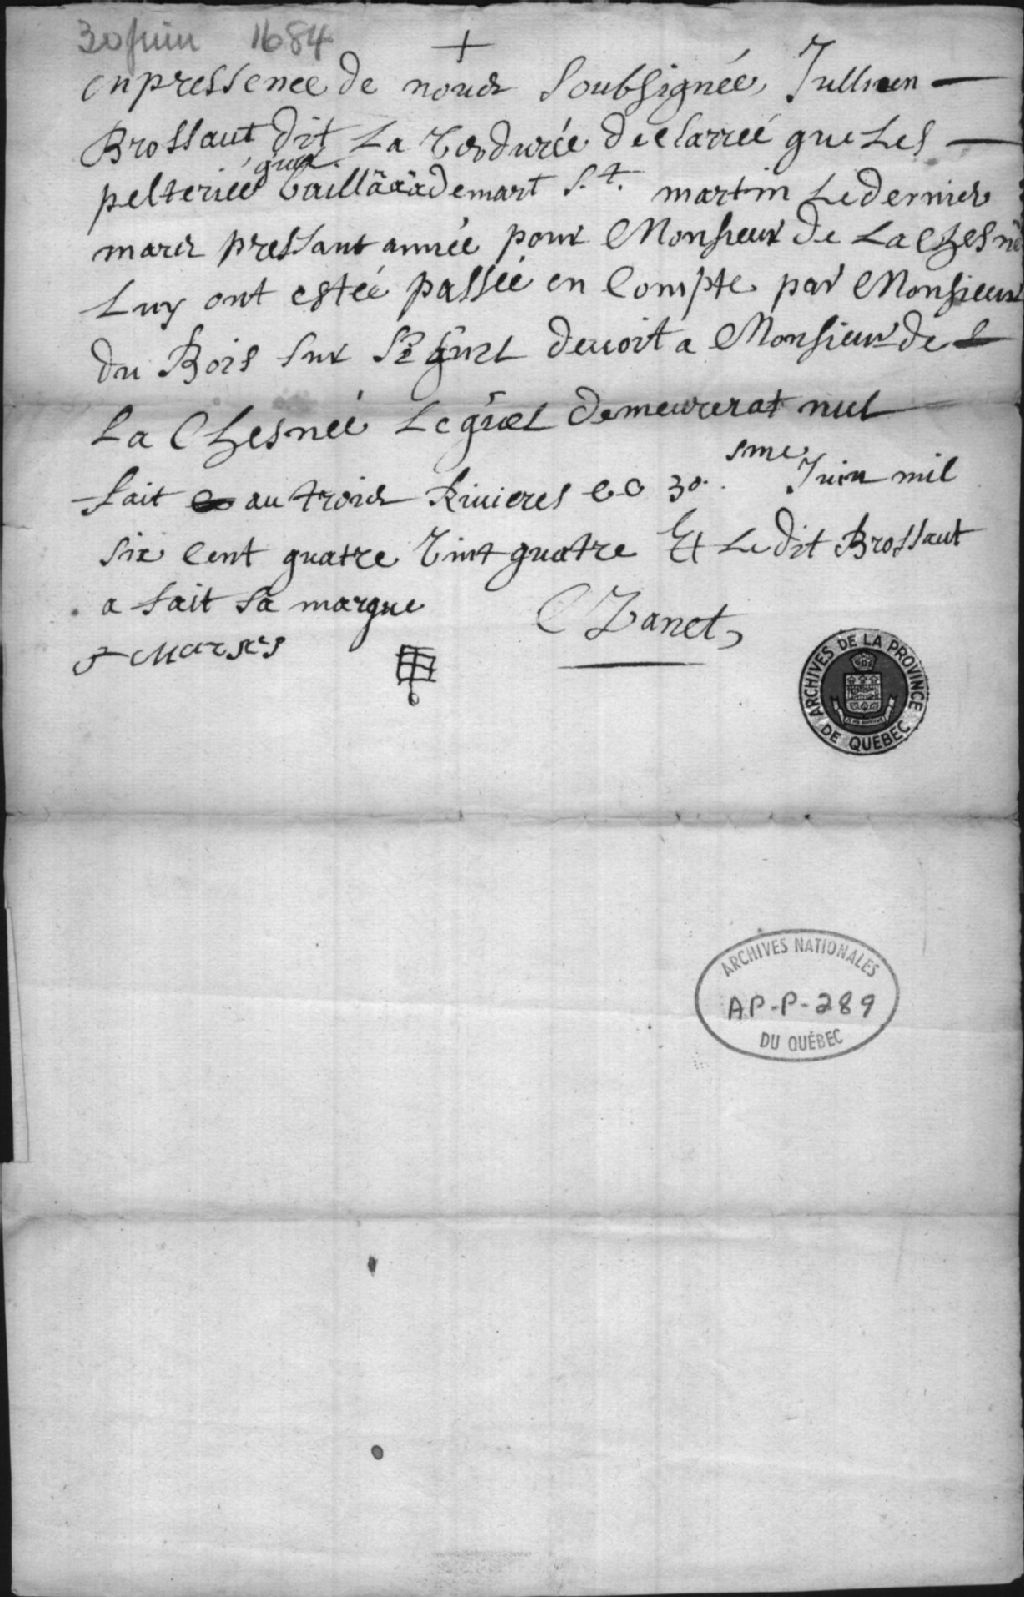 30 Juin 1684
en pressence de nouds soubsignée, Jullien
Brossaut dit La Verdurée declarreé que Les
pelteriéé quil bailla a demart St. martin Le dernier
mards pressant année pour Monsieur de La Chesné
Luy ont estéé passéé en Compte par Monsieur
du Bois sur devoit a Monsieur de
La Chesneé Lequel demeurerat nul
fait au troids Rivieres ce 30.sme Juin mil
six Cent quatre Vint quatre Et Le dit Brossaut
a fait sa marque
CZanet
ARCHIVES DE LA PROVINCE DE QUEBEC
ARCHIVES NATIONALES
AP-P-289
DU QUÉBEC